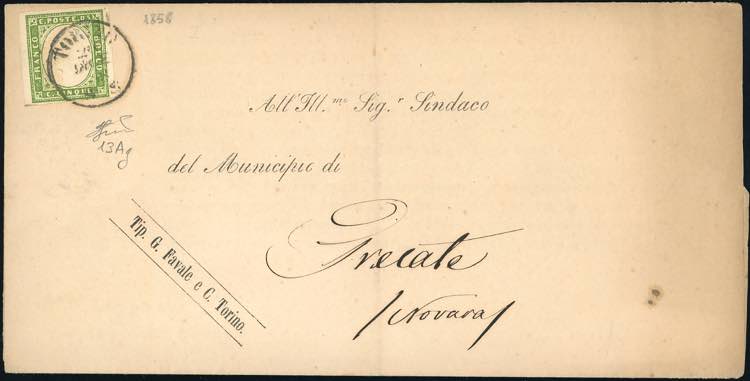 1858
C. POSTE BAI
FRANCO
BOLLO
C. CINQUE
TORINO
All'Ill.mo Sig.r Sindaco
13Ag
del Municipio di
Tip. G. Favale e C. Torino.
Grecate
(Novara)